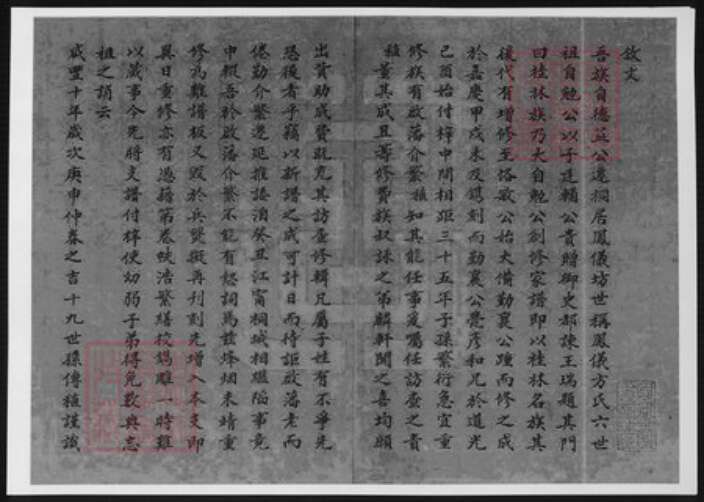 敘文
吾族自德益公遷桐居鳳儀坊世稱鳳儀方氏六世
祖自勉公以子廷輔公貴贈御史都諫王瑞題其門
曰桂林族乃大自勉公創修家譜即以桂林名族其
後代有增修至恪敏公始大備勤襄公踵而修之成
於嘉慶甲戌未及鋟刻而勤襄公薨彥和兄於道光
己酉始付梓中間相距三十五年子孫繁衍急宜重
修族有啟落介繁植知其能任事爰囑任訪查之責
植董其成且籌修費族叔詠之弟麟軒聞之喜均願
出貲助成費既充其訪查修輯凡屬子姓有不爭先
恐後者乎竊以新譜之成可計日而待詎啟落老而
倦勤介繁遷延推諉洎癸丑江甯桐城相繼陷事竟
中輟吾於啟落介繁不能有恕詞焉茲烽烟未靖重
修為難譜板又毀於兵燹擬再刊刻先增入本支即
異日重修亦有憑藉第卷帙浩繁繕校鳩雕一時難
以蕆事今先將支譜付梓使幼弱子弟得免數典忘
祖之誚云
咸豐十年歲次庚申仲春之吉十九世孫傳植謹識